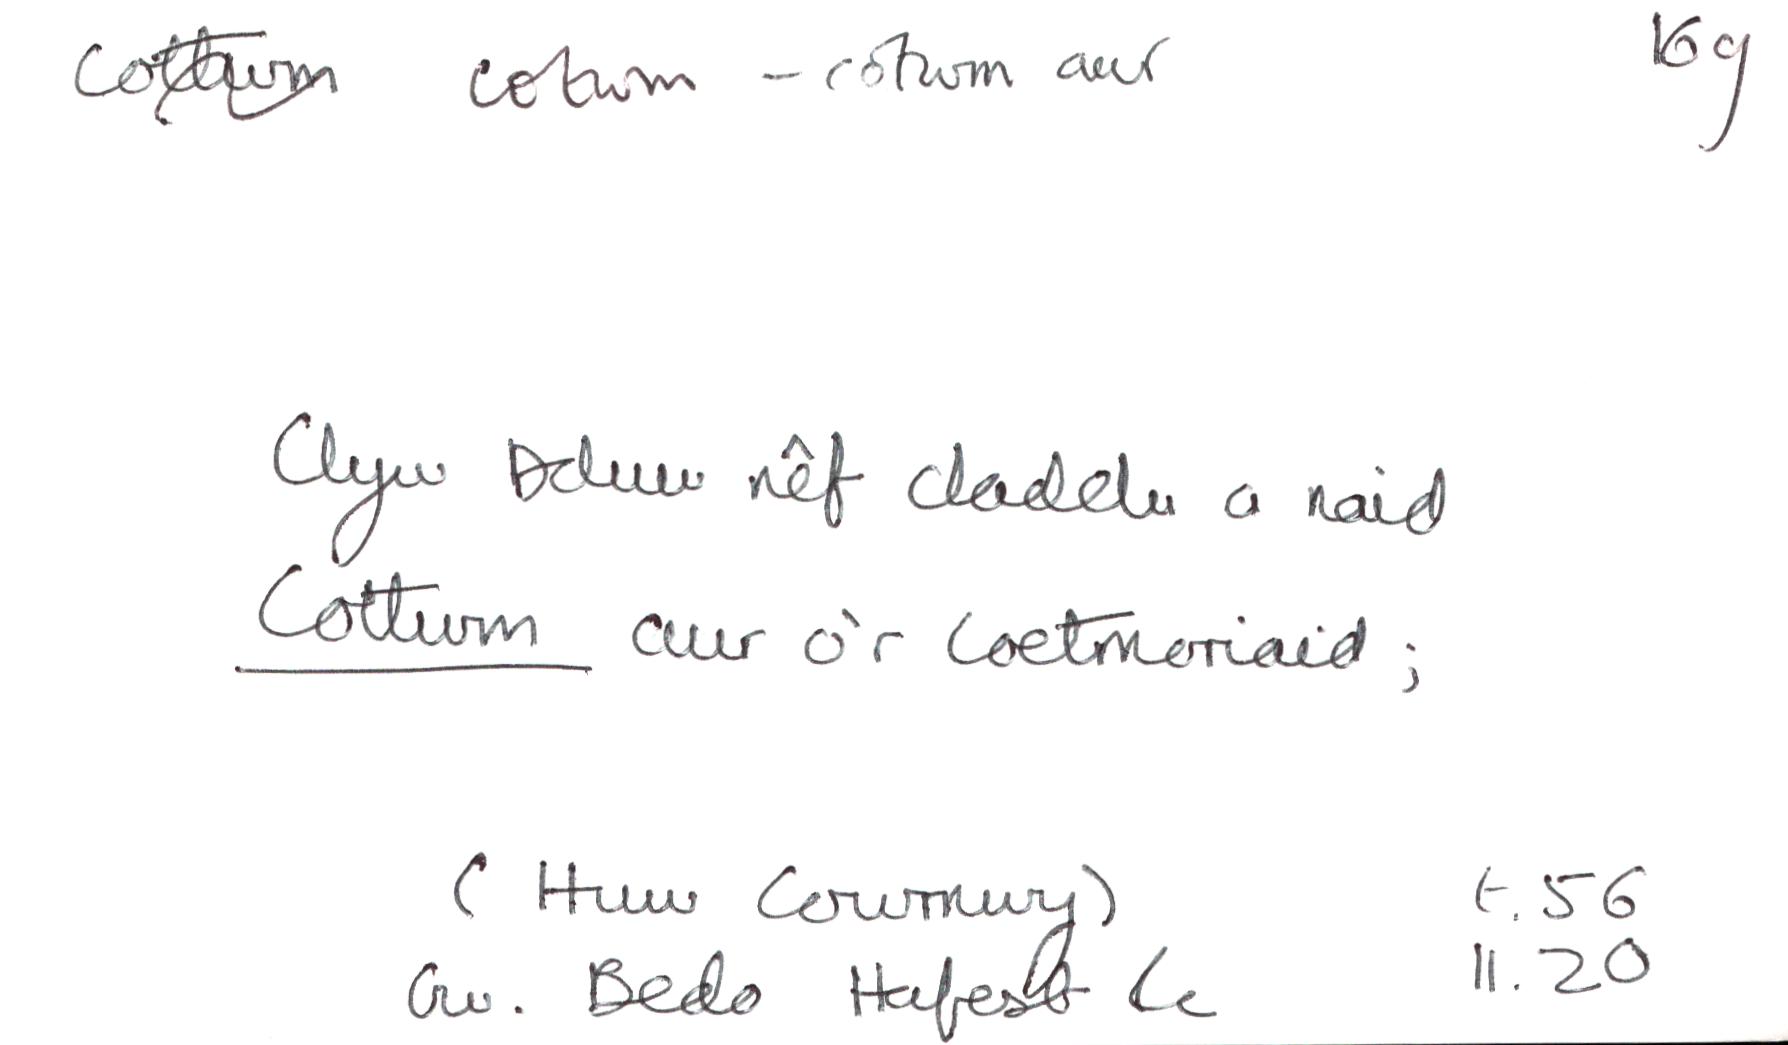 Cottwm cotwm – cotwm aur 16g
Clyw Dduw nêf claddu a naid
Cottwm aur o'r Coetmoriaid;
(Huw Cowrnwy) t. 56
Gw. Bedo Hafesb &c ll. 20